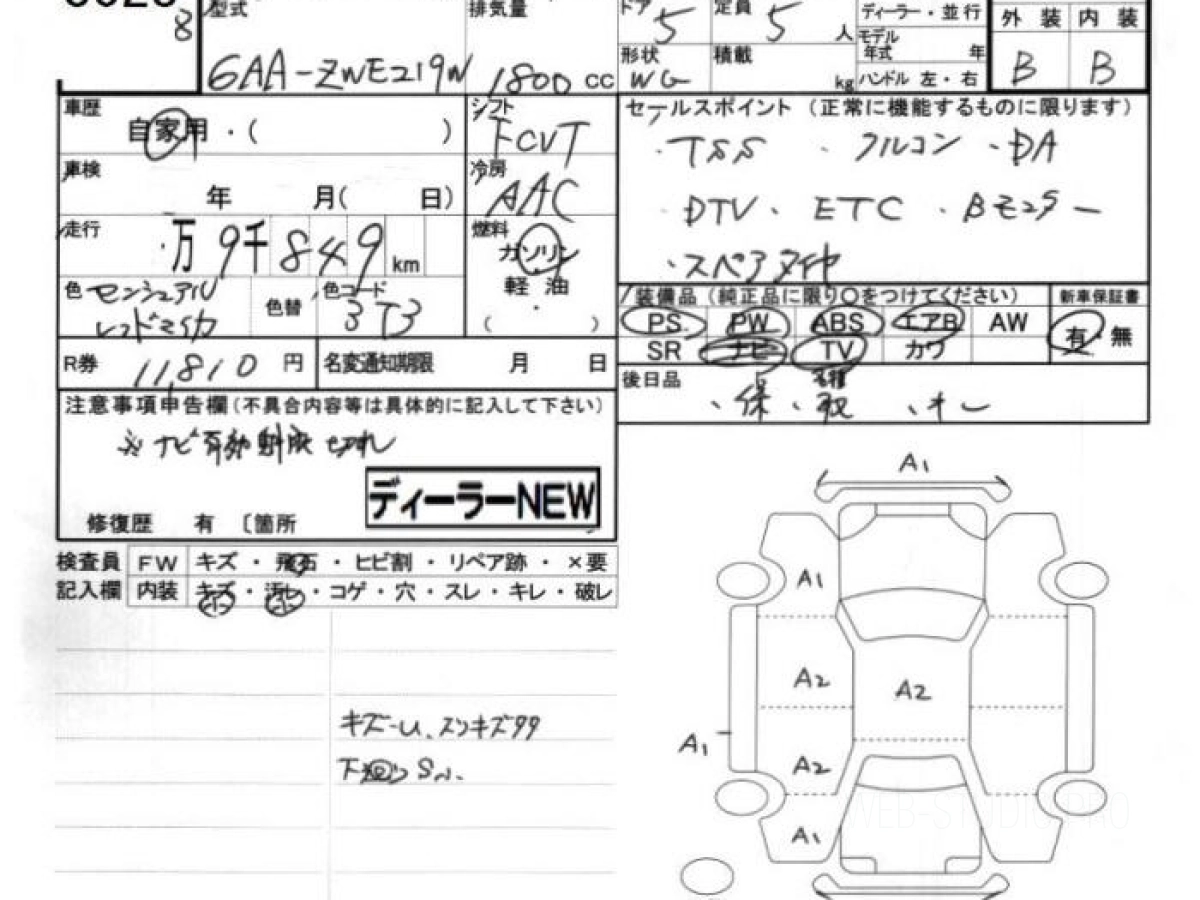 8 型式 排気量 ドア 5 定員 5 人 ディーラー・並行 外装 内装
6AA-ZWE219W 1800 cc 形状 WG 積載 kg モデル年式 年 ハンドル 左・右 B B
車歴 自家用・( )
シフト FCVT
セールスポイント (正常に機能するものに限ります)
・TSS ・フルコン ・DA
車検 年 月( 日)
冷房 AAC
・DTV・ETC・Bモニター
走行 万 9千849km
燃料 ガソリン
軽油
( ・ )
・スペアタイヤ
色 センシュアルレッドマイカ 色替 色コード 3T3
装備品 (純正品に限り○をつけてください) 新車保証書
PS PW ABS エアB AW 有・無
SR ナビ TV カワ
R券 11,810 円 名変通知期限 月 日
後日品 ・保・取 ・ナビ
注意事項申告欄(不具合内容等は具体的に記入して下さい)
※ナビ有効期限切れ
ディーラーNEW
修復歴 有 〔箇所
検査員 FW キズ・飛石・ヒビ割・リペア跡・×要
記入欄 内装 キズ・汚れ・コゲ・穴・スレ・キレ・破レ
キズ
下回りS
A1
A1
A2
A2
A1
A2
A1
WEB-STUDIO PRO